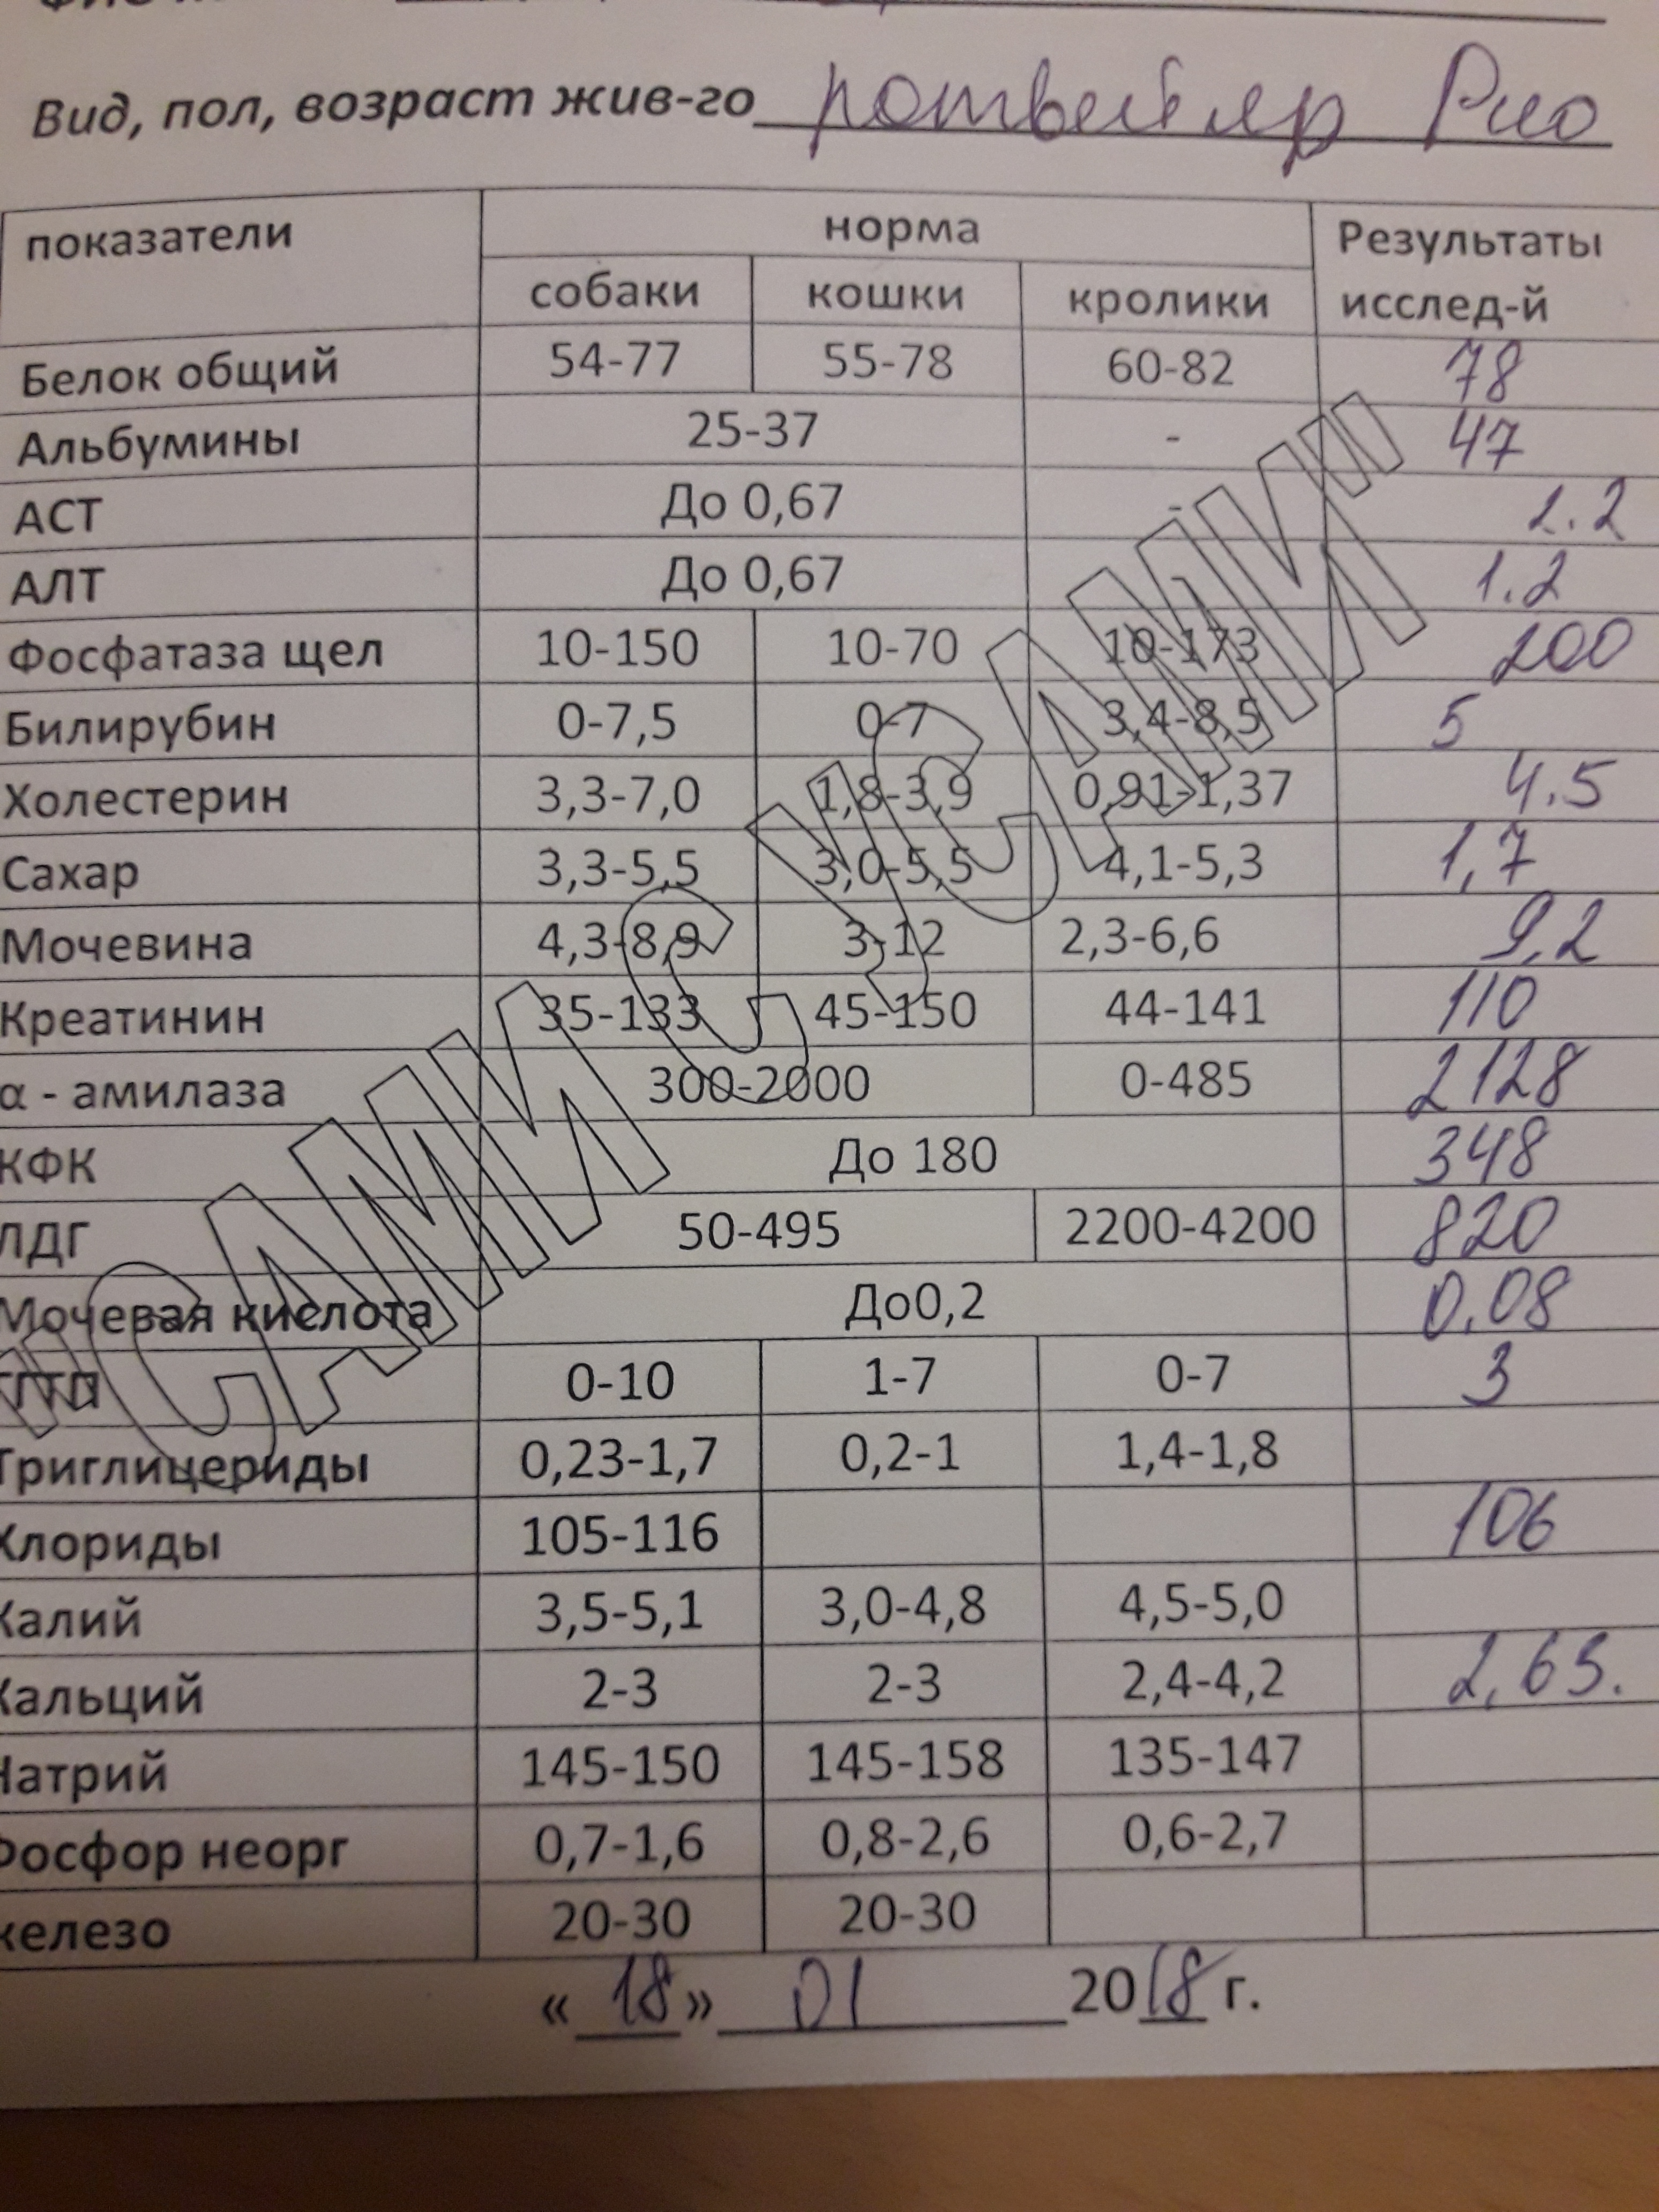 Вид, пол, возраст жив-го ротвейлер Рио
показатели норма Результаты исслед-й
собаки кошки кролики
Белок общий 54-77 55-78 60-82 78
Альбумины 25-37 - 47
АСТ До 0,67 - 1.2
АЛТ До 0,67 1.2
Фосфатаза щел 10-150 10-70 10-173 200
Билирубин 0-7,5 0-7 3,4-8,5 5
Холестерин 3,3-7,0 1,8-3,9 0,91-1,37 4.5
Сахар 3,3-5,5 3,0-5,5 4,1-5,3 1,7
Мочевина 4,3-8,9 3-12 2,3-6,6 9,2
Креатинин 35-133 45-150 44-141 110
α - амилаза 300-2000 0-485 2128
КФК До 180 348
ЛДГ 50-495 2200-4200 820
Мочевая кислота До0,2 0.08
0-10 1-7 0-7 3
Триглицериды 0,23-1,7 0,2-1 1,4-1,8
Хлориды 105-116 106
Калий 3,5-5,1 3,0-4,8 4,5-5,0
Кальций 2-3 2-3 2,4-4,2 2,65.
Натрий 145-150 145-158 135-147
Фосфор неорг 0,7-1,6 0,8-2,6 0,6-2,7
железо 20-30 20-30
«18» 01 2018 г.